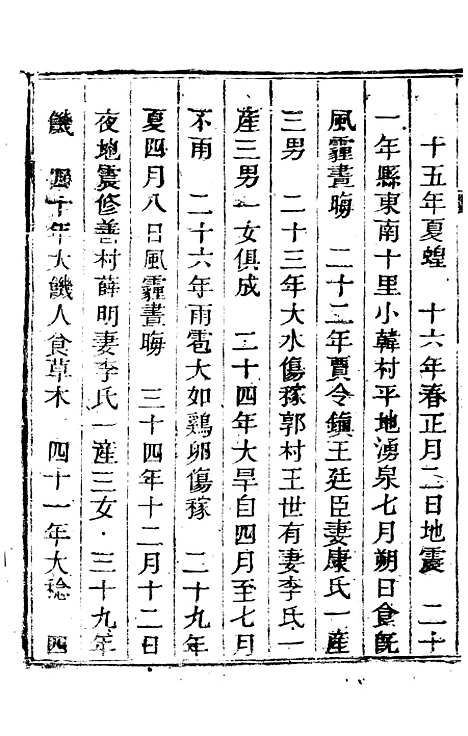 十五年夏蝗　十六年春正月二日地震　二十
一年縣東南十里小韓村平地湧泉七月朔日食旣
風霾晝晦　二十二年賈令鎭王廷臣妻康氏一產
三男　二十三年大水傷稼郭村王世有妻李氏一
產三男一女俱成　二十四年大旱自四月至七月
不雨　二十六年雨雹大如鷄卵傷稼　二十九年
夏四月八日風霾晝晦　三十四年十二月十二日
夜地震修善村薛明妻李氏一產三女　三十九年
饑　四十年大饑人食草木　四十一年大稔　四